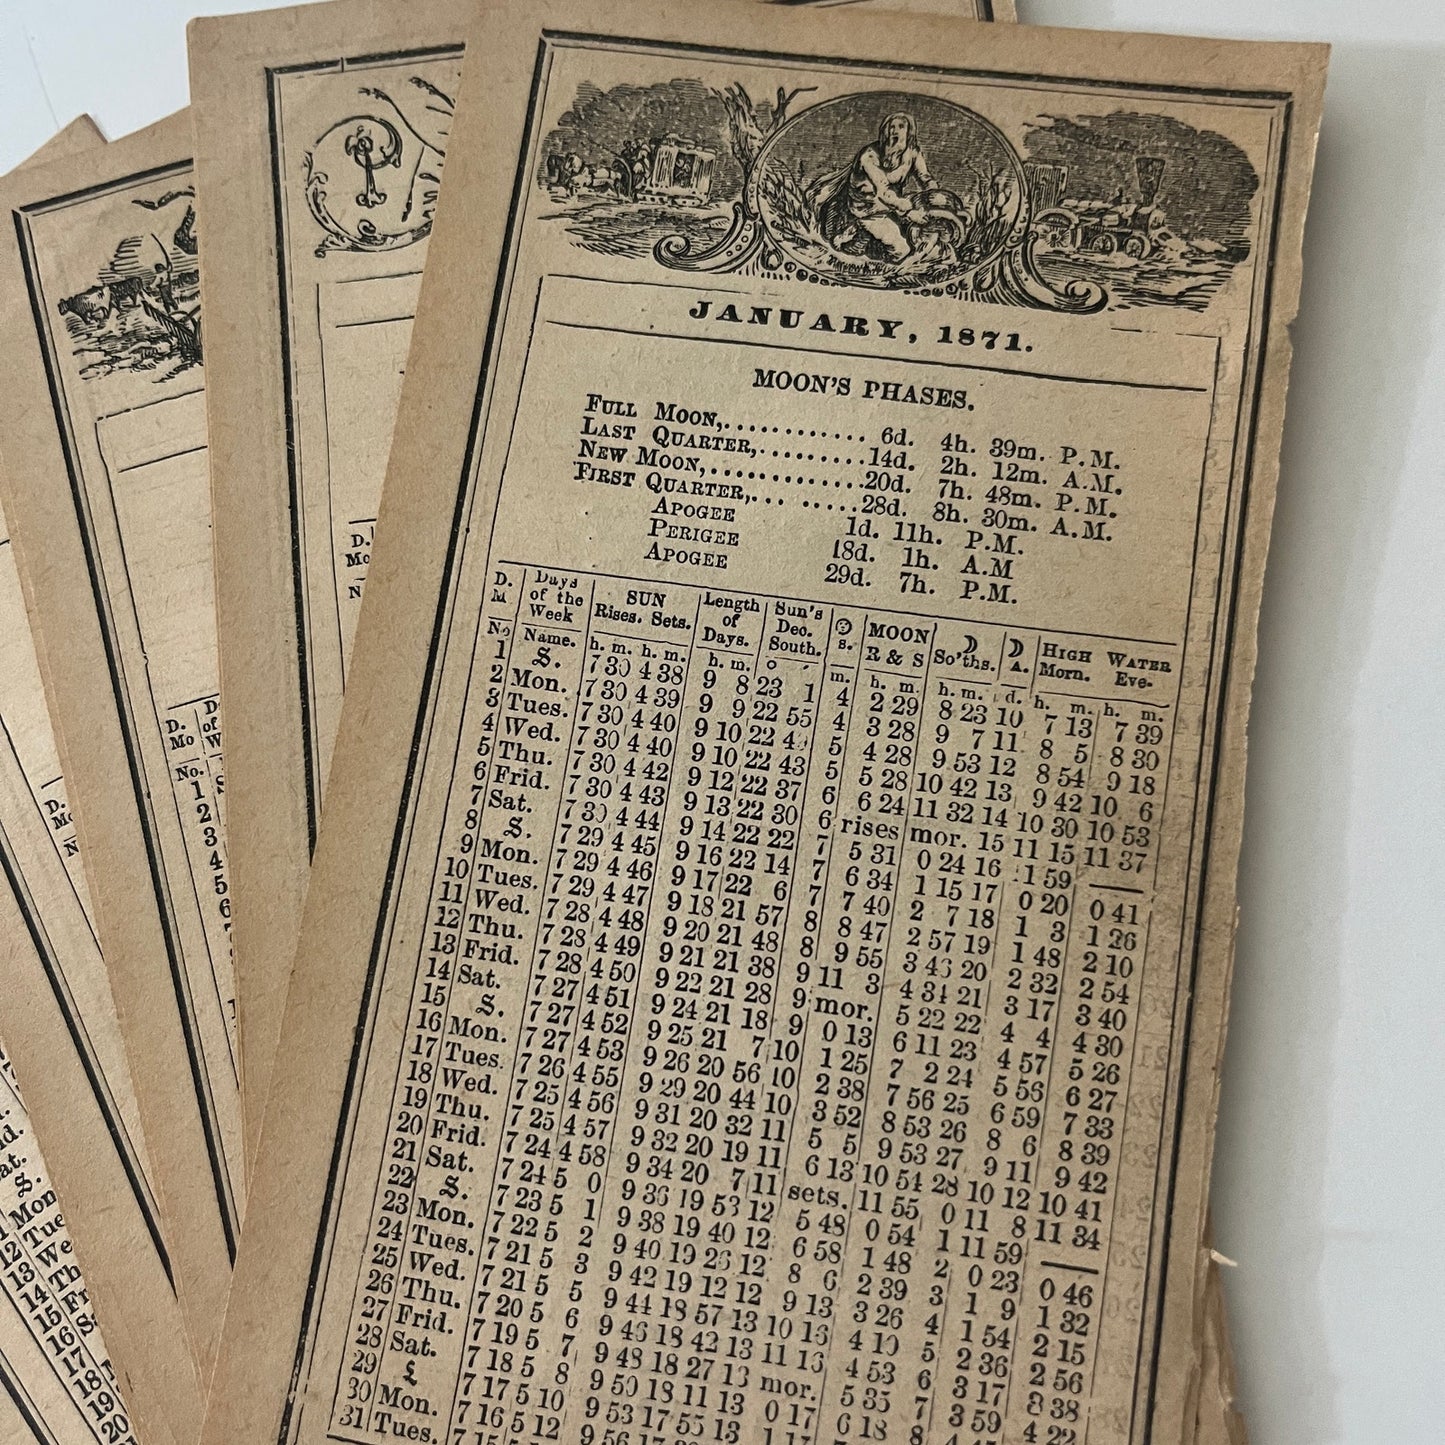 JANUARY, 1871.
MOON'S PHASES.
FULL MOON,............ 6d. 4h. 39m. P.M.
LAST QUARTER,.........14d. 2h. 12m. A.M.
NEW MOON,.............20d. 7h. 48m. P.M.
FIRST QUARTER,... .....28d. 8h. 30m. A.M.
APOGEE 1d. 11h. P.M.
PERIGEE 18d. 1h. A.M
APOGEE 29d. 7h. P.M.
D. M Days of the Week SUN Rises. Sets. Length of Days. Sun's Dec. South. s. MOON R & S ☽ So'ths. ☽ A. HIGH WATER Morn. Eve-
No Name. h. m. h. m. h. m. o ' m. h. m. h. m. d. h. m. h. m.
1 S. 7 30 4 38 9 8 23 1 4 2 29 8 23 10 7 13 7 39
2 Mon. 7 30 4 39 9 9 22 55 4 3 28 9 7 11 8 5 8 30
3 Tues. 7 30 4 40 9 10 22 49 5 4 28 9 53 12 8 54 9 18
4 Wed. 7 30 4 40 9 10 22 43 5 5 28 10 42 13 9 42 10 6
5 Thu. 7 30 4 42 9 12 22 37 6 6 24 11 32 14 10 30 10 53
6 Frid. 7 30 4 43 9 13 22 30 6 rises mor. 15 11 15 11 37
7 Sat. 7 30 4 44 9 14 22 22 7 5 31 0 24 16 11 59 —
8 S. 7 29 4 45 9 16 22 14 7 6 34 1 15 17 0 20 0 41
9 Mon. 7 29 4 46 9 17 22 6 7 7 40 2 7 18 1 3 1 26
10 Tues. 7 29 4 47 9 18 21 57 8 8 47 2 57 19 1 48 2 10
11 Wed. 7 28 4 48 9 20 21 48 8 9 55 3 46 20 2 32 2 54
12 Thu. 7 28 4 49 9 21 21 38 9 11 3 4 34 21 3 17 3 40
13 Frid. 7 28 4 50 9 22 21 28 9 mor. 5 22 22 4 4 4 30
14 Sat. 7 27 4 51 9 24 21 18 9 0 13 6 11 23 4 57 5 26
15 S. 7 27 4 52 9 25 21 7 10 1 25 7 2 24 5 56 6 27
16 Mon. 7 27 4 53 9 26 20 56 10 2 38 7 56 25 6 59 7 33
17 Tues. 7 26 4 55 9 29 20 44 10 3 52 8 53 26 8 6 8 39
18 Wed. 7 25 4 56 9 31 20 32 11 5 5 9 53 27 9 11 9 42
19 Thu. 7 25 4 57 9 32 20 19 11 6 13 10 54 28 10 12 10 41
20 Frid. 7 24 4 58 9 34 20 7 11 sets. 11 55 0 11 8 11 34
21 Sat. 7 24 5 0 9 36 19 53 12 5 48 0 54 1 11 59 —
22 S. 7 23 5 1 9 38 19 40 12 6 58 1 48 2 0 23 0 46
23 Mon. 7 22 5 2 9 40 19 26 12 8 6 2 39 3 1 9 1 32
24 Tues. 7 21 5 3 9 42 19 12 12 9 13 3 26 4 1 54 2 15
25 Wed. 7 21 5 5 9 44 18 57 13 10 16 4 10 5 2 36 2 56
26 Thu. 7 20 5 6 9 46 18 42 13 11 16 4 53 6 3 17 3 38
27 Frid. 7 19 5 7 9 48 18 27 13 mor. 5 35 7 3 59 4 22
28 Sat. 7 18 5 8 9 50 18 11 13 0 17 6 18 8
29 S 7 17 5 10 9 53 17 55 13
30 Mon. 7 16 5 12 9 56 17
31 Tues. 7 15
D. Mo
N
D. Mo
No.
1
2
3
4
5
6
D.
N
Mon
12 Tue
13 We
14 Th
15 Fr
16 Sa
17
18
19
20